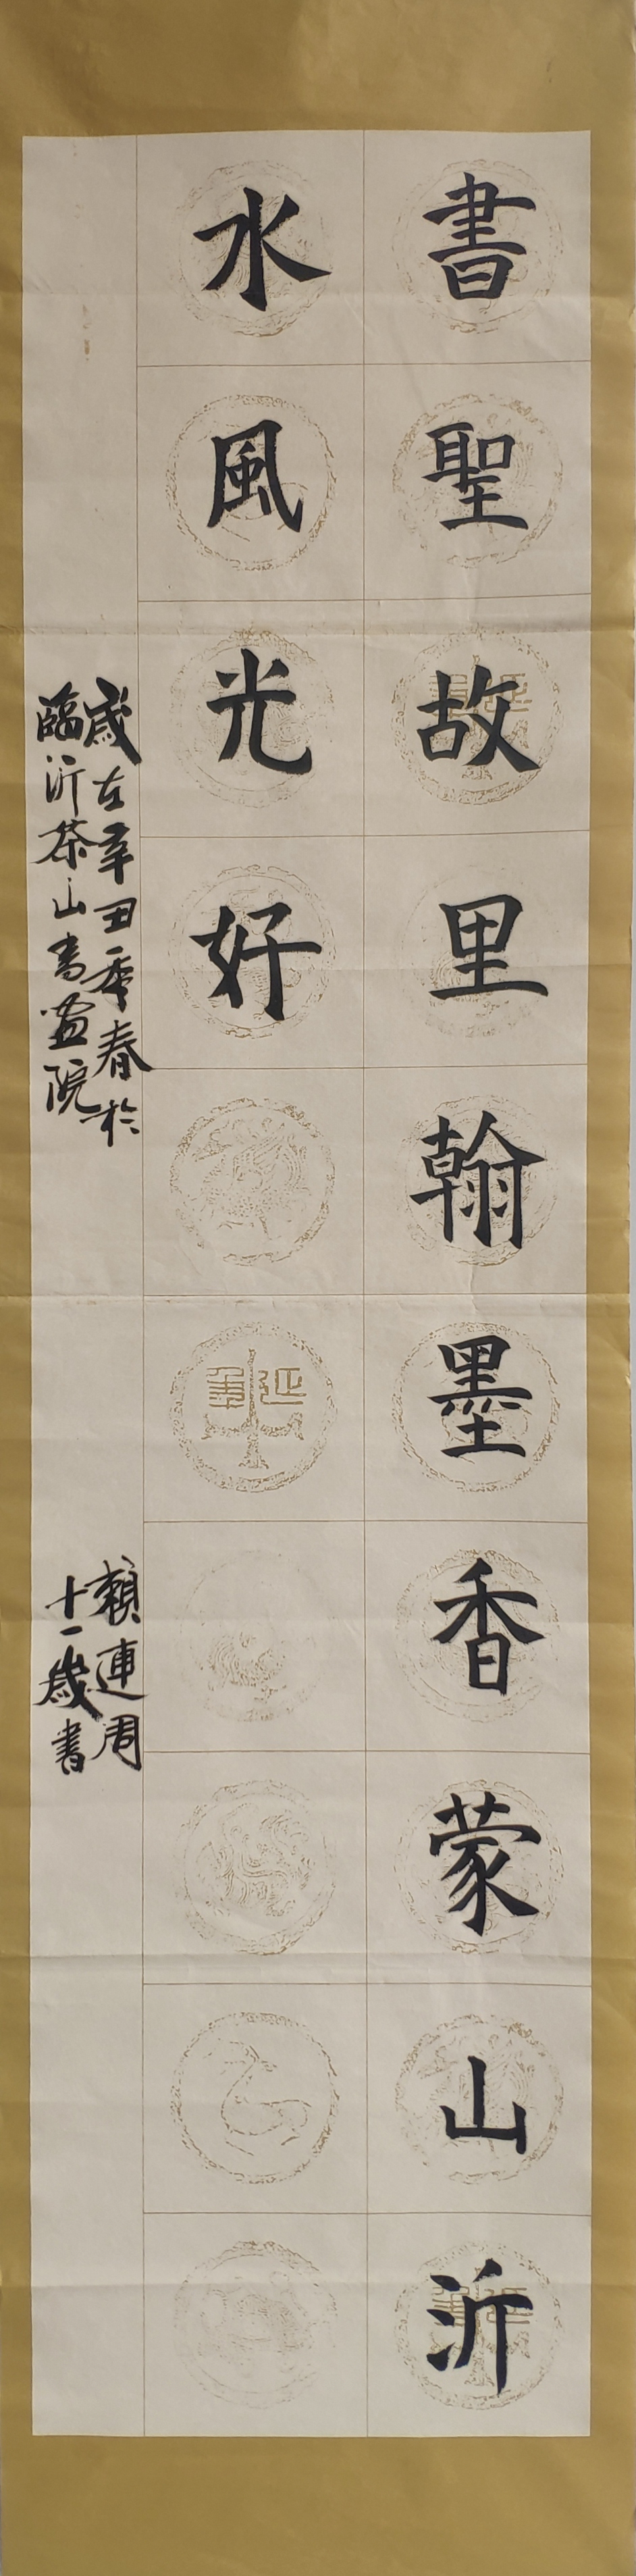 書聖故里翰墨香蒙山沂
水風光好
歲在辛丑季春於
臨沂茶山書畫院
賴連周
十一歲書